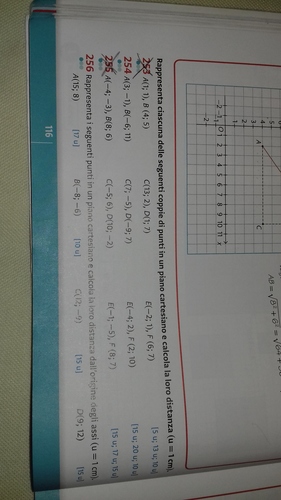 AB = √
A
C
-2 -1 0 1 2 3 4 5 6 7 8 9 10 11 x
Rappresenta ciascuna delle seguenti coppie di punti in un piano cartesiano e calcola la loro distanza (u = 1 cm).
253 A(1; 1), B(4; 5) C(13; 2), D(1; 7) E(-2; 1), F(6; 7) [5 u; 13 u; 10 u]
254 A(3; -1), B(-6; 11) C(7; -5), D(-9; 7) E(-4; 2), F(2; 10) [15 u; 20 u; 10 u]
255 A(-4; -3), B(8; 6) C(-5; 6), D(10; -2) E(-1; -5), F(8; 7) [15 u; 17 u; 15 u]
256 Rappresenta i seguenti punti in un piano cartesiano e calcola la loro distanza dall'origine degli assi (u = 1 cm).
A(15; 8) [17 u] B(-8; -6) [10 u] C(12; -9) [15 u] D(9; 12) [15 u]
116